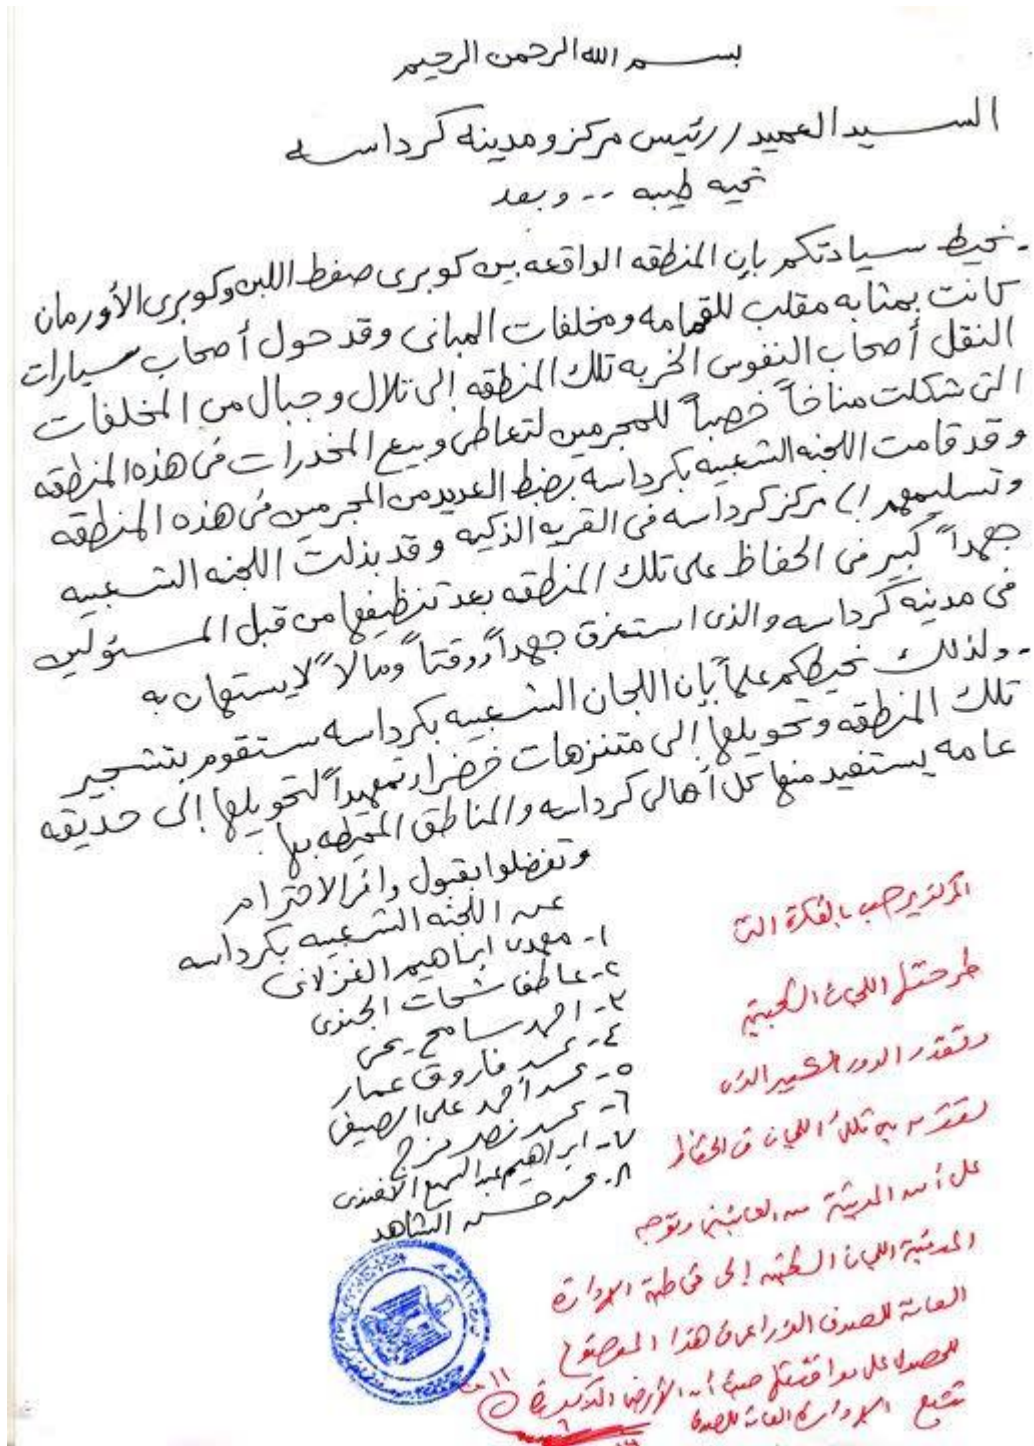 بسم الله الرحمن الرحيم
السيد العميد / رئيس مركز ومدينه كرداسه
تحيه طيبه .. وبعد
- نحيط سيادتكم بإن المنطقه الواقعه بين كوبرى صفط اللبن وكوبرى الأورمان
كانت بمثابه مقلب للقمامه ومخلفات المبانى وقد حول أصحاب سيارات
النقل أصحاب النفوس الخربه تلك المنطقه إلى تلال وجبال من المخلفات
التى شكلت مناخاً خصباً للمجرمين لتعاطى وبيع المخدرات فى هذه المنطقه
وقد قامت اللجنه الشعبيه بكرداسه بضبط العديد من المجرمين فى هذه المنطقه
وتسليمهم إلى مركز كرداسه فى القريه الذكيه وقد بذلت اللجنه الشعبيه
جهداً كبير فى الحفاظ على تلك المنطقه بعد تنظيفها من قبل المسئولين
فى مدينه كرداسه والذى استغرق جهداً ووقتاً ومالاً لا يستهان به
- ولذلك نحيطكم علماً بإن اللجان الشعبيه بكرداسه ستقوم بتشجير
تلك المنطقه وتحويلها إلى متنزهات خضراء تمهيداً لتحويلها إلى حديقه
عامه يستفيد منها كل أهالى كرداسه والمناطق المحيطه بها.
وتفضلوا بقبول وافر الاحترام
عن اللجنه الشعبيه بكرداسه
١- مهدى ابراهيم الغزلانى
٢- عاطف شحات الجندى
٣- احمد سامح يحى
٤- محمد فاروق عمار
٥- محمد أحمد على الصيفى
٦- محمد نصر فرج
٧- ابراهيم عبد السميع الافندى
٨- محمد حسن الشاهد
المركز يرحب بالفكرة التى
طرحتها اللجان الشعبية
وتقدر الدور الكبير الذى
تقوم به تلك اللجان فى الحفاظ
على أمن المدينة من العابثين وتوجه
المدينة اللجان الشعبية إلى مخاطبة الإدارة
العامة للصرف الزراعى فى هذا الموضوع
للحصول على موافقتها حيث أن الأرض المذكورة
تتبع الإدارة العامة للصرف